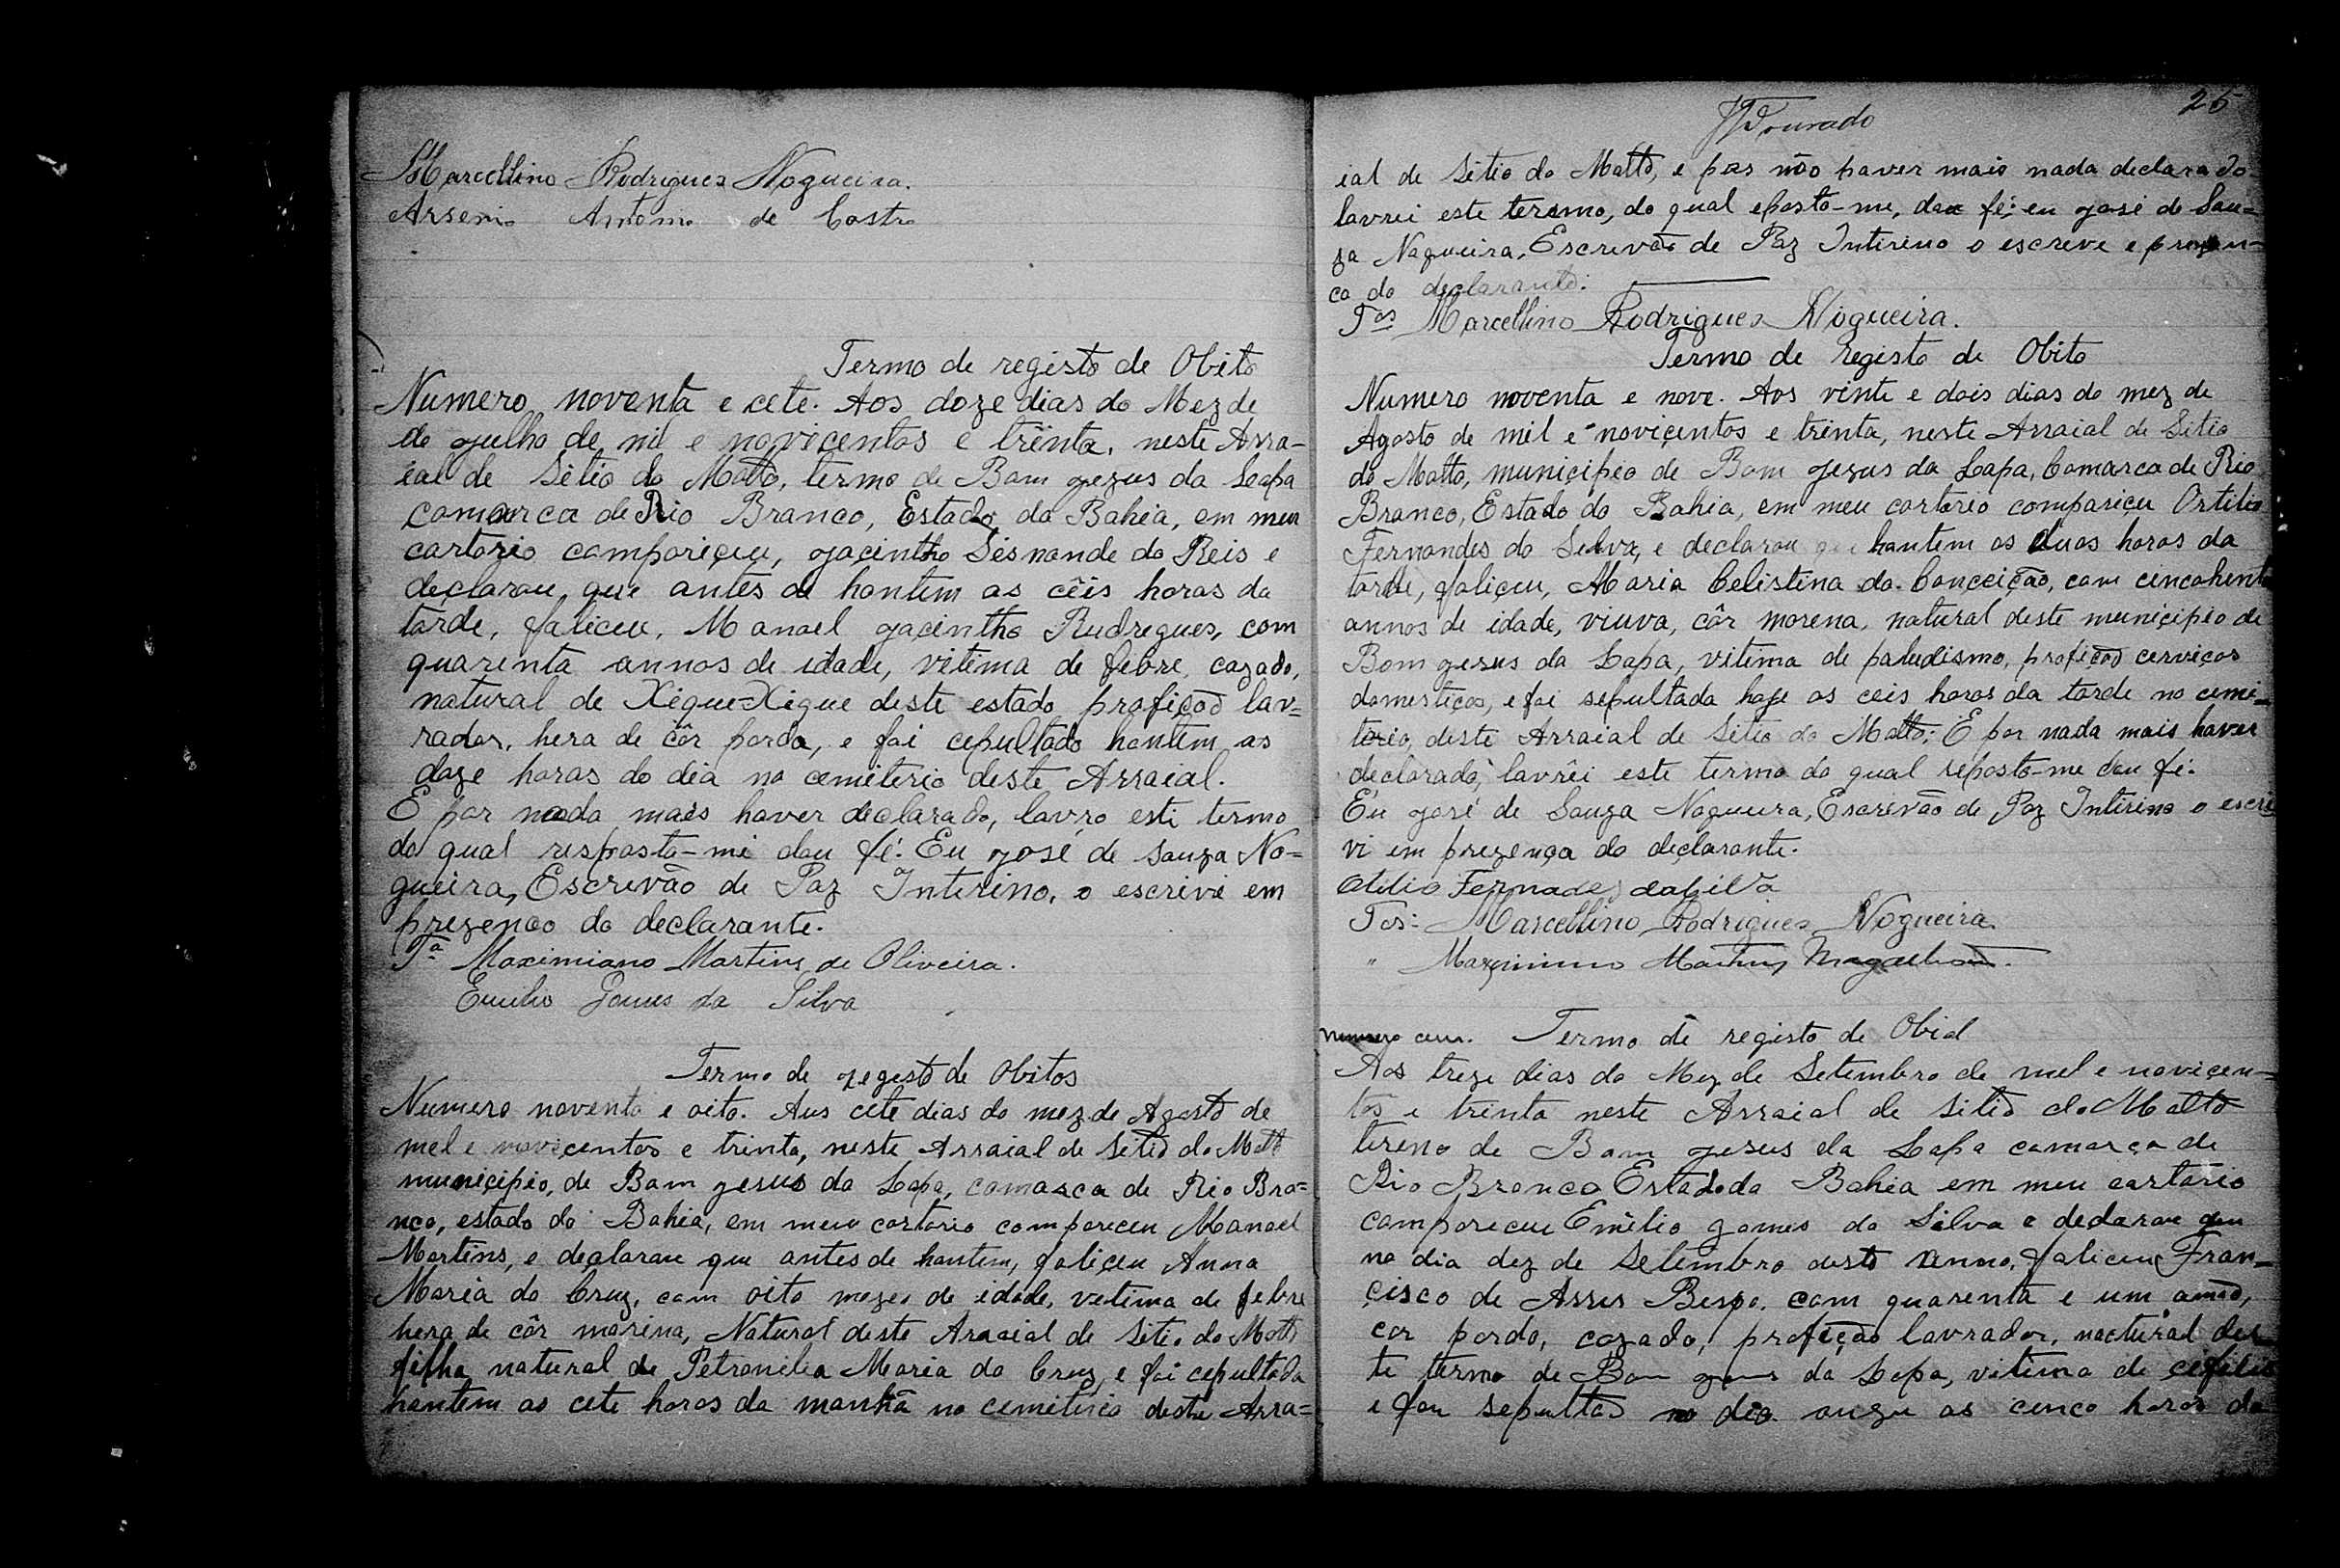 Marcellino Rodrigues Nogueira.
Arsenio Antonio de Castro
Termo de registo de Obito
Numero noventa e cete. Aos doze dias do Mez de
do julho de mil e novicentos e trinta, neste Arra-
ial de Sitio do Matto, termo de Bam jezus da Lapa
comarca de Rio Branco, Estado da Bahia, em meu
cartorio campariçeu, jacintho Sesnande do Reis e
declarou que antes de hontem as cêis horas da
tarde, faliceu, Manoel jacintho Rudregues, com
quarenta annos de idade, vitima de febre, cazado,
natural de Xique=Xique deste estado profiçoã lav=
rador, hera de côr parda, e foi cepultado hontem as
doze horas do dia no cemiterio deste Arraial.
E por nada mais haver declarado, lavro este termo
do qual resposto-mi dou fé. Eu josé de Sauza No=
gueira, Escrevão de Paz Interino, o escrivi em
prezenca do declarante.
Ta Maximiano Martins de Oliveira.
Emilio Gomes da Silva
Termo de regesto de Obitos
Numero noventa e oito. Aus cete dias do mez de Agosto de
mel e novicentos e trinta, neste Arraial de Sitio do Matto
municipio, de Bam jesus da Lapa, comarca de Rio Bra=
nco, estado da Bahia, em meu cartorio compareceu Manael
Martins, e declarou que antes de hantem, faliçeu Anna
Maria da Cruz, com oito mezes de idade, vetima de febre
hera de côr morina, Natural deste Arraial de Sitio do Matto
filha natural de Petronilia Maria da Cruz, e foi cepultada
hontem as cete horas da manhã no cemiterio deste Arra=
25
Dourado
ial de Sitio do Matto, e por não haver mais nada declarado
lavrei este teremo, do qual eposto-me, dou fé; eu josé de Sau=
za Nogueira, Escrevão de Paz Intireno o escreve e prezen-
ca do declarante.
Tas Marcellino Rodrigues Nogueira.
Termo de Registo de Obito
Numero noventa e nove. Aos vinte e dois dias do mez de
Agosto de mil e noviçentos e trinta, neste Arraial de Sitio
do Matto, municipio de Bom jezus da Lapa, Comarca de Rio
Branco, Estado da Bahia, em meu cartorio compariçeu Ortilio
Fernandes da Selva, e declarou que hantem as duas horas da
tarde, faliçeu, Maria Celistina da Conceição, com cincohenta
annos de idade, viuva, côr morena, natural deste municipio de
Bom jesus da Lapa, vitima de paludismo, profiçoã cerviços
domestiços, e foi sepultada hoje as ceis horas da tarde no cemi-
terio, deste Arraial de Sitio do Matto; E por nada mais haver
declarado, lavrêi este termo do qual reposto-me dou fé.
Eu josé de Sauza Nogueira, Escrevão de Paz Intirino o escri
vi em prezença do declarante.
Otilio Fernades da Cilva
Tas: Marcellino Rodrigues Nogueira
" Martins Magalhães.
numero cem. Termo de registo de Obid
Aos treze dias do Mez de Setembro de mel e noviçen=
tos e trinta neste Arraial de Sitio do Matto
tereno de Bom jesus da Lapa camarça de
Rio Branco Estado da Bahia em meu cartorio
compareceu Emilio gomes da Silva e declarou que
no dia dez de Setembro deste anno, faliceu Fran-
çisco de Assis Bespo, com quarenta e um annos,
cor pardo, cazado, profição lavrador, nactural des-
te termo de Bom jesus da Lapa, vitima de cifilis
e fou sepultad no dia onze as cinco horas da